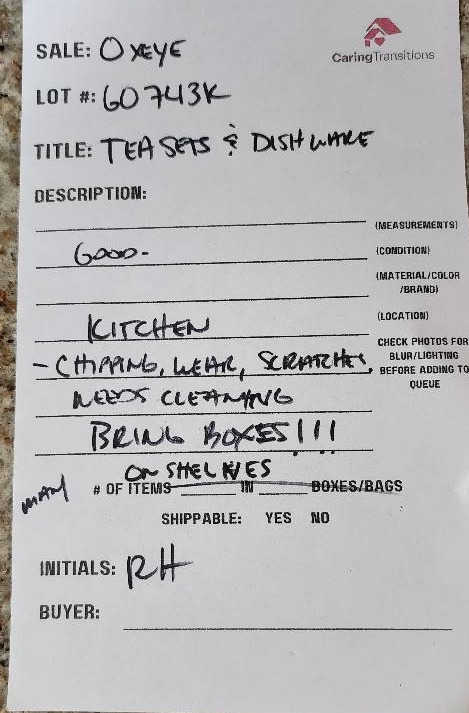 SALE: OXEYE
CaringTransitions
LOT #: 60743K
TITLE: TEA SETS & DISHWARE
DESCRIPTION:
(MEASUREMENTS)
GOOD- (CONDITION)
(MATERIAL/COLOR
/BRAND)
KITCHEN (LOCATION)
- CHIPPING, WEAR, SCRATCHES, CHECK PHOTOS FOR
BLUR/LIGHTING
BEFORE ADDING TO
QUEUE
NEEDS CLEANING
BRING BOXES!!!
ON SHELVES
MANY # OF ITEMS ______ IN ______ BOXES/BAGS
SHIPPABLE: YES NO
INITIALS: RH
BUYER: